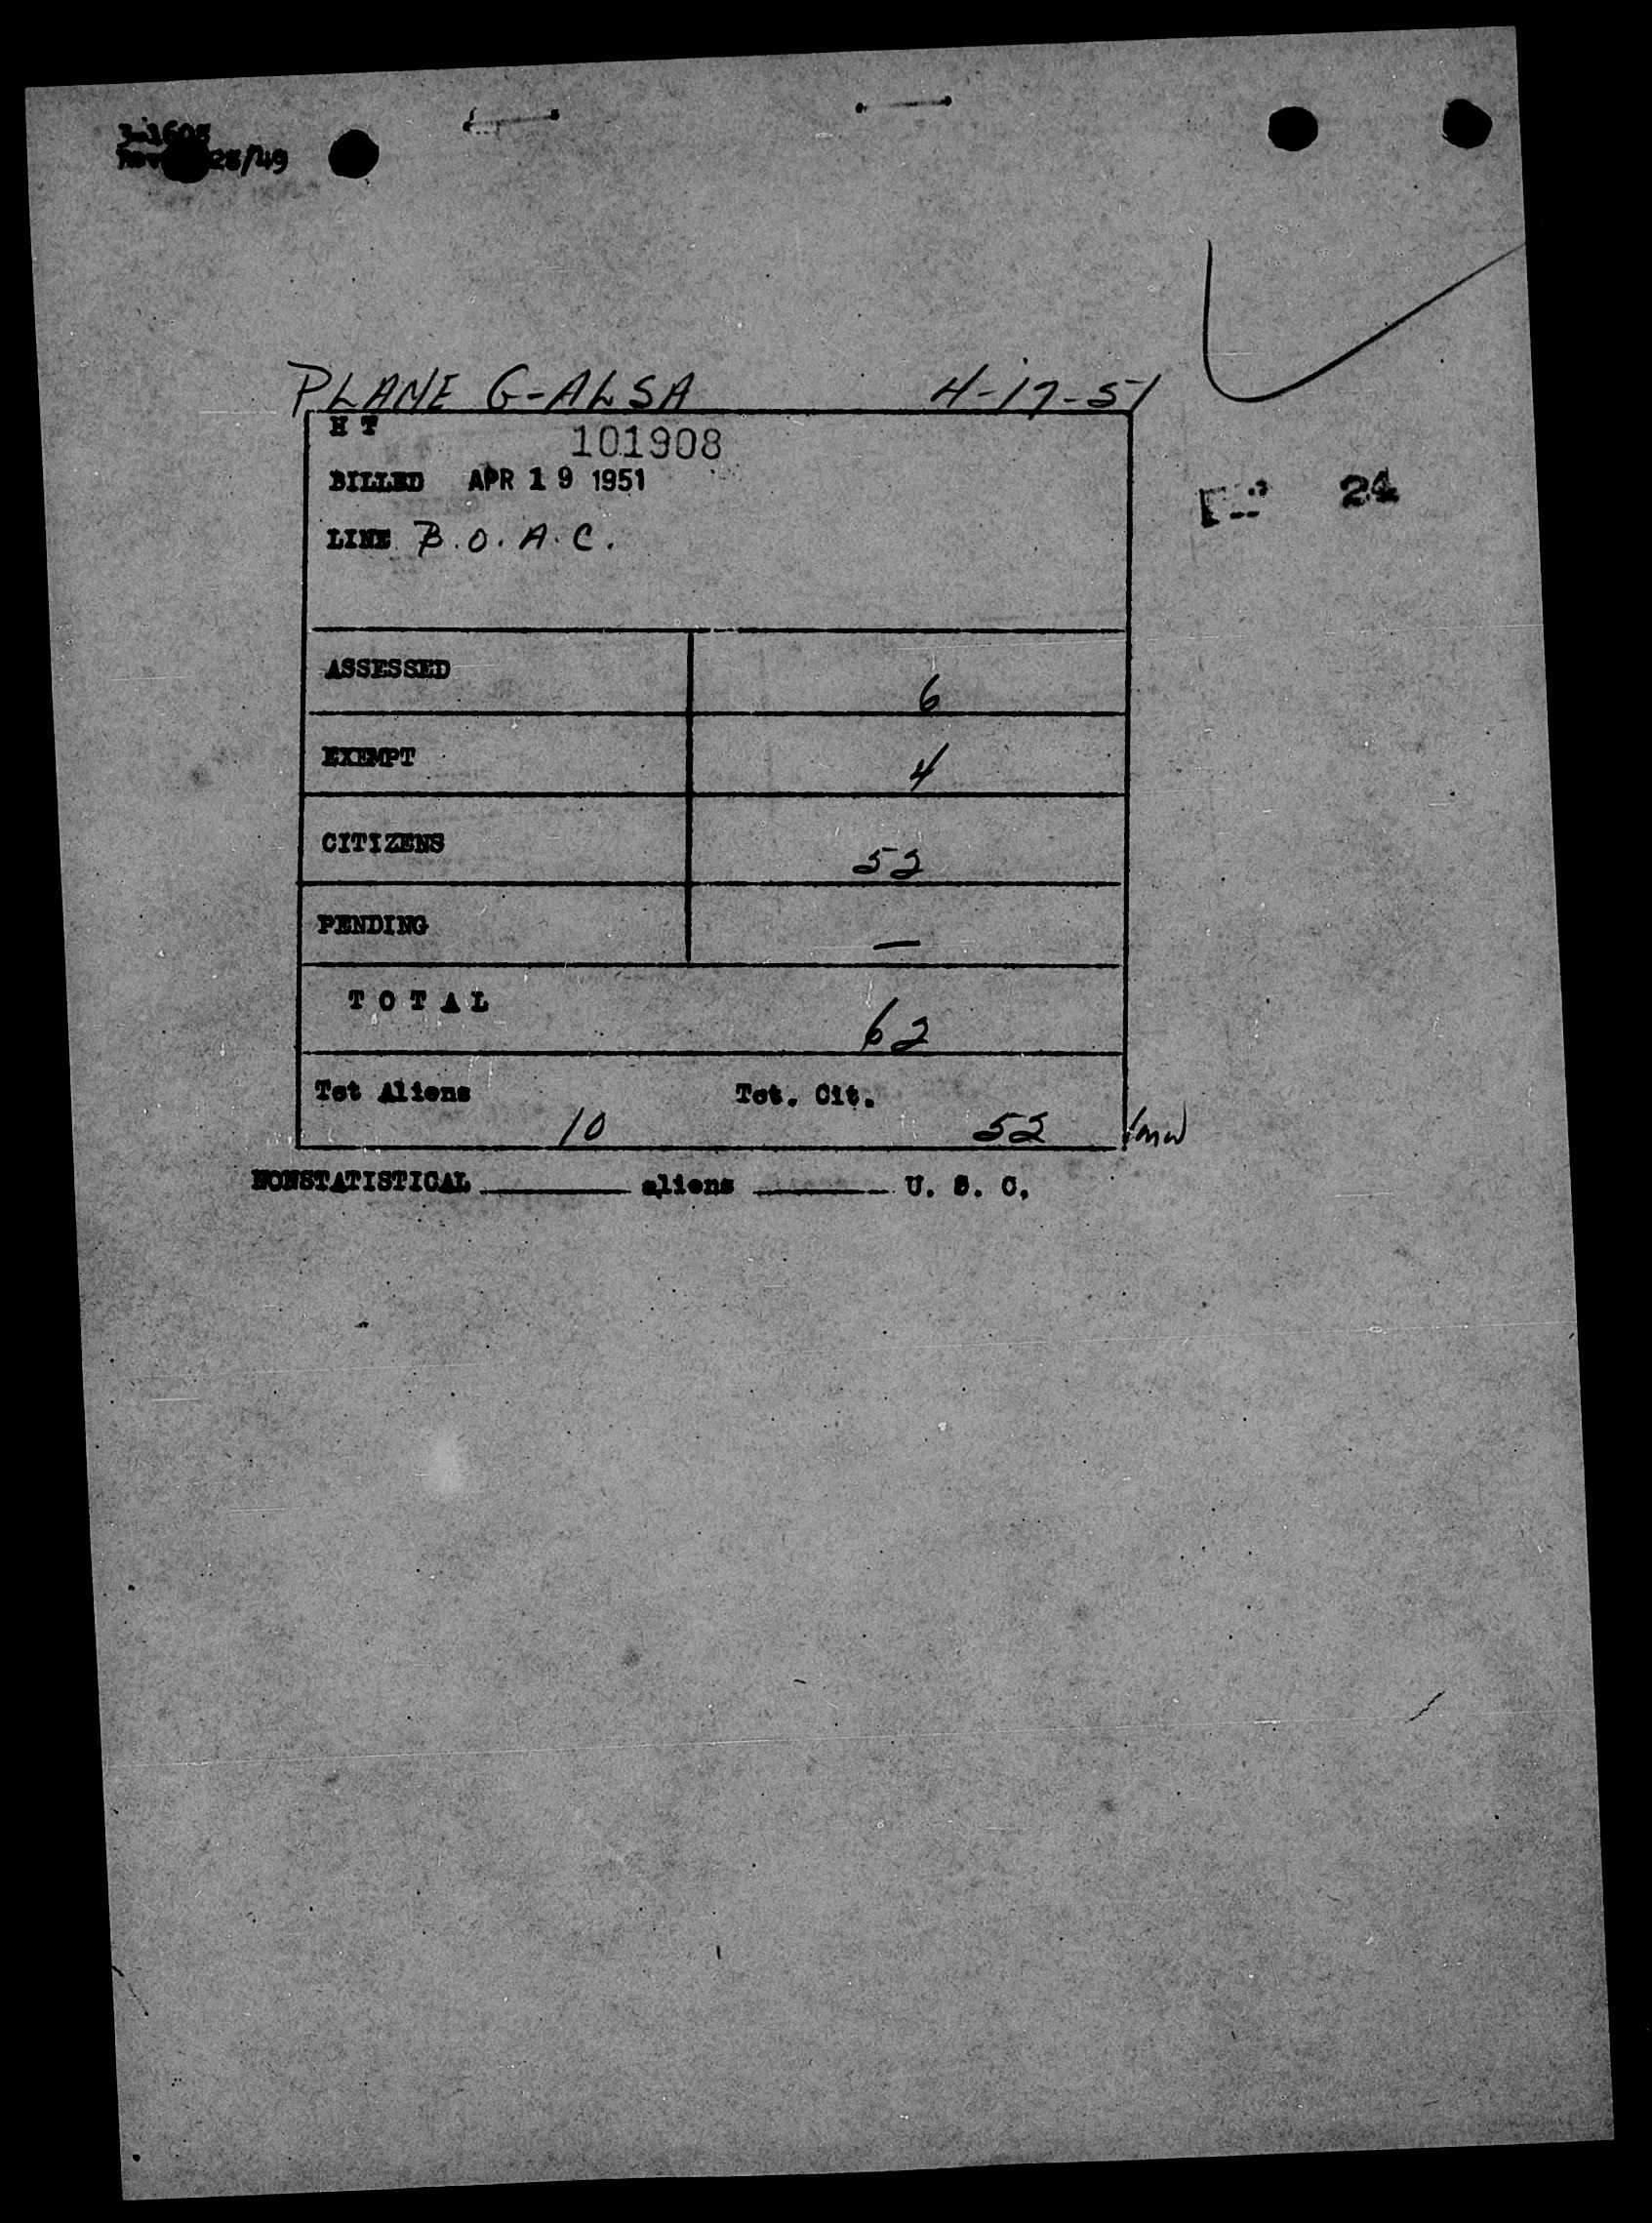 3-1608
Rev 28/49
PLANE G-ALSA 4-17-51
H T 101908
BILLED APR 19 1951
LINE B.O.A.C.
24
ASSESSED 6
EXEMPT 4
CITIZENS 52
PENDING —
TOTAL 62
Tot Aliens 10 Tot. Cit. 52
NONSTATISTICAL ________ aliens ________ U. S. C.